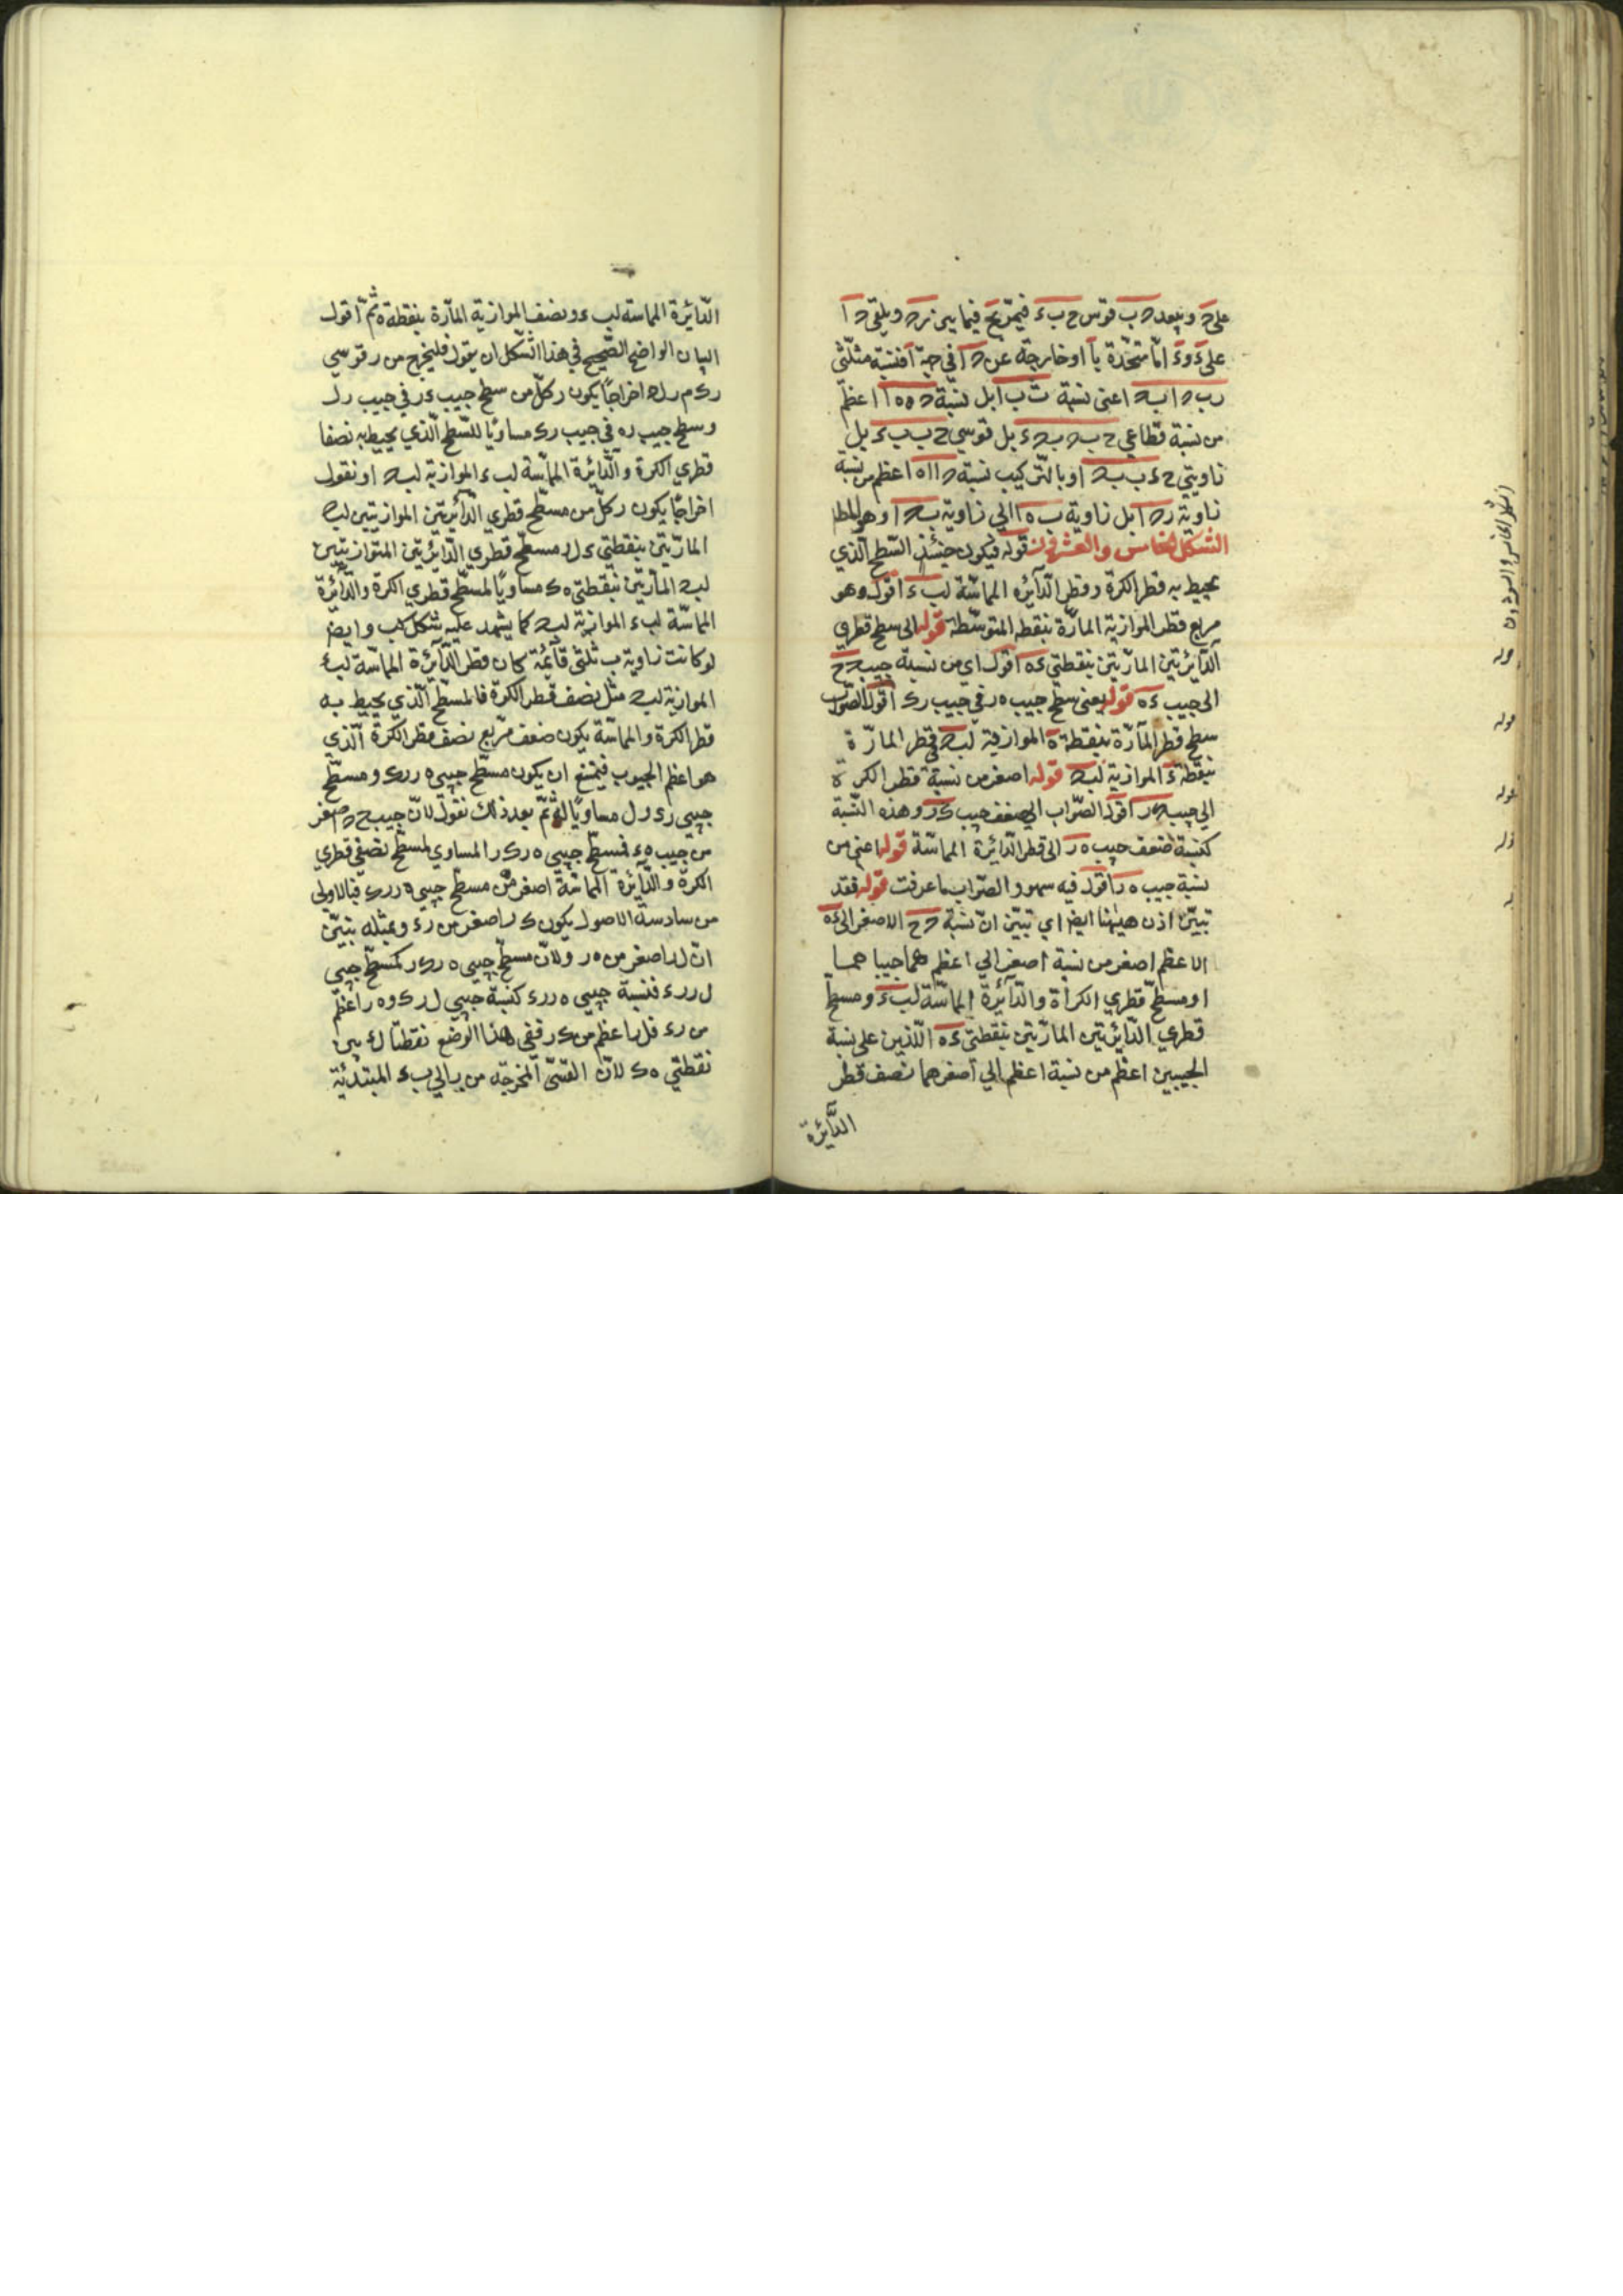 على ه وببعد ه ب قوس ح ب ء فيمر بح فيما بين زه ويلقى ه ا
على ء وء امّا متحدة با او خارجة عن ه ا في جهة ا فنسبة مثلثي
اعنى نسبة بل نسبة اعظم
من نسبة قطاعي بل قوسي بل
زاويتي او بالتركيب نسبة اعظم من نسبة
زاوية بل زاوية الى زاوية وهو المط
الشكل الخامس والعشرون قوله فيكون حينئذ السّطح الّذي
يحيط به قطر الكرة وقطر الدّآئره المماسّة لب ء اقول وهو
مربع قطر الموازية المارّة بنقطه المتوسّطة قوله الى سطح قطري
الدّآئرتين المارّتين بنقطتي ء ه اقول اي من نسبة جيب ه ح
الى جيب ء ه قوله يعنى سطح جيب ه ر في جيب ر ك اقول الصّواب
سطح قطر المآرّة بنقطة ه الموازية لب ه في قطر المارّة
بنقطة ء الموازية لب ه قوله اصغر من نسبة قطر الكرة
الى جيب اقول الصّواب الى ضعف جيب ك ر وهذه النّسبة
كنسبة ضعف جيب ه ر الى قطر الدّائرة المماسّة قوله اعنى من
نسبة جيب ه ر اقول فيه سهو والصّواب ما عرفت قوله فقد
تبيّن اذن هيهنا ايضا اي تبيّن انّ نسبة ه ح الاصغر الى ء ه
الاعظم اصغر من نسبة اصغر الى اعظم هما جيبا هما
او مسطّح قطري الكرة والدّآئرة المماسّة لب ء ومسطّح
قطري الدّائرتين المارّتين بنقطتي ء ه اللّذين على نسبة
الجيبين اعظم من نسبة اعظم الى اصغر هما نصف قطر
الدّآئرة
الشكل الخامس والعشرون
قوله
قوله
قوله
قوله
الدّآئرة المماسة لب ء ونصف الموازية المارّة بنقطة ه ثمّ اقول
البيان الواضح الصّحيح في هذا الشّكل ان يقول فليخرج من ر قوسي
ر ك م ر ل ه اخراجًا يكون ر كلّ من سطح جيب ء ر في جيب ر ل
وسطح جيب ر ه في جيب ر ك مساويًا للسّطح الّذي يحيط به نصفا
قطري الكرة والدّائرة المماسّة لب ء الموازية لب ه او نقول
اخراجًا يكون ر كلّ من مسطّح قطري الدّآئرتين الموازيتين لب ه
المارّتين بنقطتي ء ل ر مسطّح قطري الدّائرتين المتوازيتين
لب ه المارّتين بنقطتي ه ك مساويًا لمسطّح قطري الكرة والدّآئرة
المماسّة لب ء الموازية لب ه كما يشهد عليه شكل كب وايضا
لو كانت زاوية ب ثلثي قآئمة كان قطر الدّآئرة المماسّة لب ء
الموازية لب ه مثل نصف قطر الكرة فالمسطّح الّذي يحيط به
قطر الكرة والمماسّة يكون ضعف مربّع نصف قطر الكرة الّذي
هو اعظم الجيوب فيمتنع ان يكون مسطّح جيبي ه ر ر ك ومسطّح
جيبي ر ء ر ل مساويًا له ثمّ بعد ذلك نقول لانّ جيب ح ه اصغر
من جيب ه ء فمسطّح جيبي ه ر ك ر المساوي لمسطّح نصفي قطري
الكرة والدّآئرة المماسّة اصغر من مسطّح جيبي ه ر ر ء فبالاولى
من سادسة الاصول يكون ك ر اصغر من ر ء وبمثله نبيّن
انّ ل ر اصغر من ه ر ولانّ مسطّح جيبي ه ر ك ر كمسطّح جيبي
ل ر ر ء فنسبة جيبي ه ر ر ء كنسبة جيبي ل ر ك ر وه ر اعظم
من ر ء فل ر اعظم من ك ر ففي هذا الوضع نقطتا ل ء بين
نقطتي ه ك لانّ القسيّ المخرجة من ر الى ب ء المبتدئية